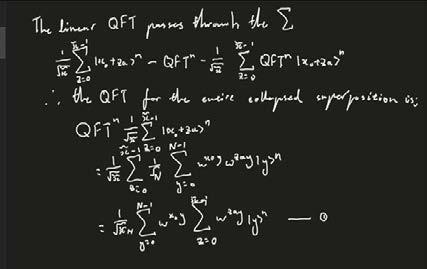 The linear QFT passes through the Σ
1/√x̃ Σ_{z=0}^{x̃-1} |x₀+za>ⁿ – QFTⁿ – 1/√x̃ Σ_{z=0}^{x̃-1} QFTⁿ |x₀+za>ⁿ
∴ the QFT for the entire collapsed superposition is;
QFTⁿ 1/√x̃ Σ_{z=0}^{x̃-1} |x₀+za>ⁿ
= 1/√x̃ Σ_{z=0}^{x̃-1} 1/√N Σ_{y=0}^{N-1} w^{x₀y} w^{zay} |y>ⁿ
= 1/√x̃N Σ_{y=0}^{N-1} w^{x₀y} Σ_{z=0}^{x̃-1} w^{zay} |y>ⁿ —